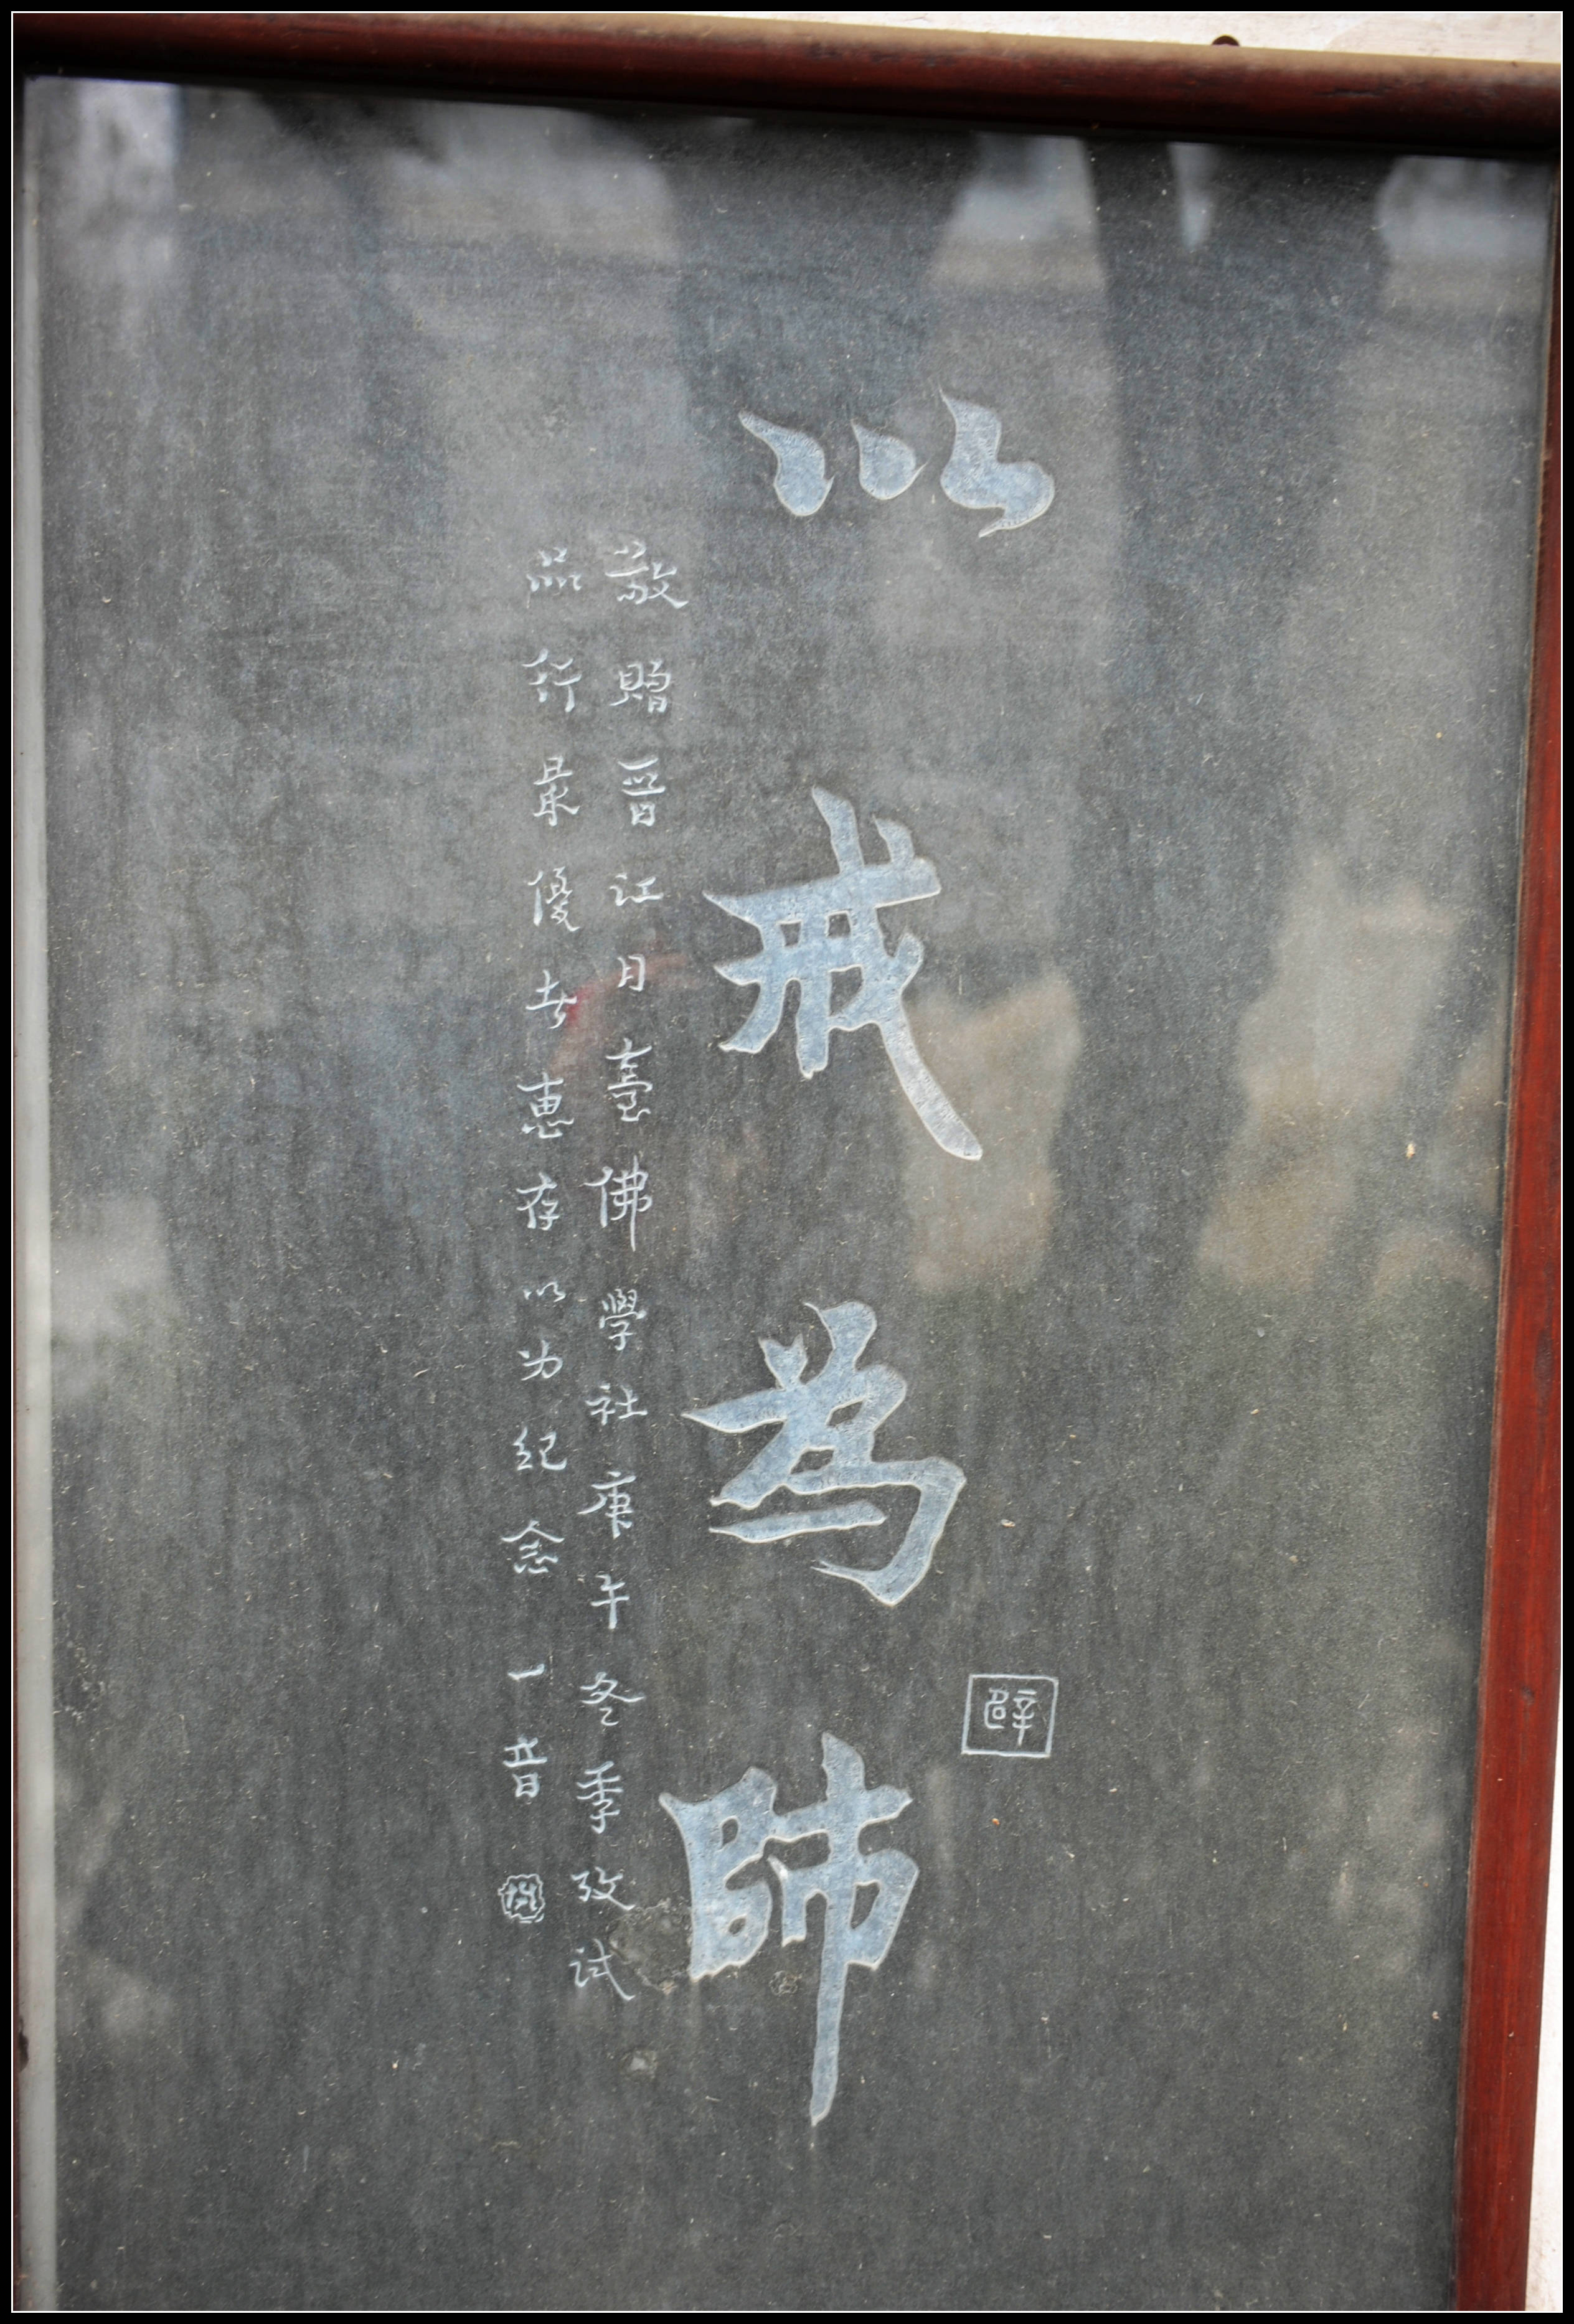 以戒為師
敬贈晋江月臺佛學社庚午冬季攷試
品行最優者惠存以为紀念 一音